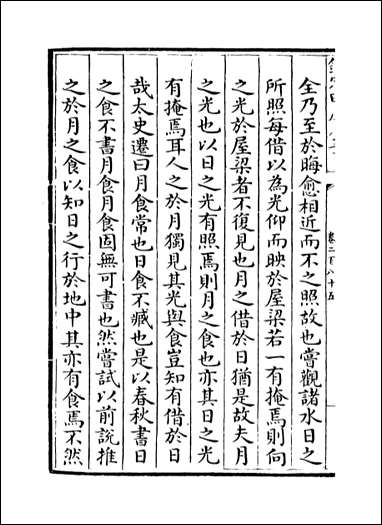 卷二百八十五
全乃至於晦愈相近而不之照故也嘗觀諸水日之
所照每借以為光仰而映於屋梁若一有掩焉則向
之光於屋梁者不復見也月之借於日猶是故夫月
之光也以日之光有照焉則月之食也亦其日之光
有掩焉耳人之於月獨見其光與食豈知有借於日
哉太史遷曰月食常也日食不臧也是以春秋書日
之食不書月食月食固無可書也然嘗試以前說推
之於月之食以知日之行於地中其亦有食焉不然